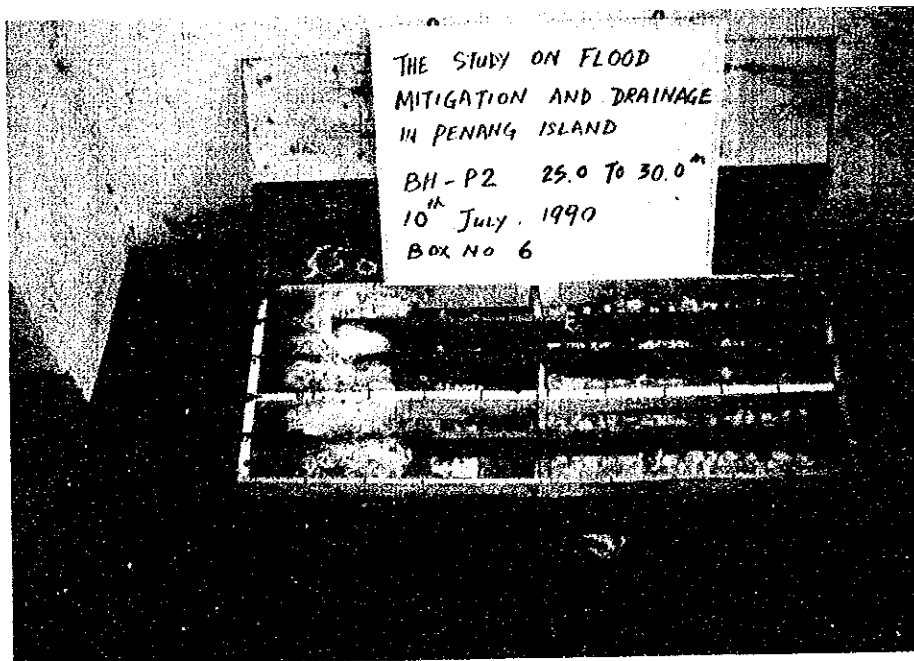 THE STUDY ON FLOOD
MITIGATION AND DRAINAGE
IN PENANG ISLAND
BH-P2 25.0 TO 30.0m
10th July. 1990
BOX NO 6